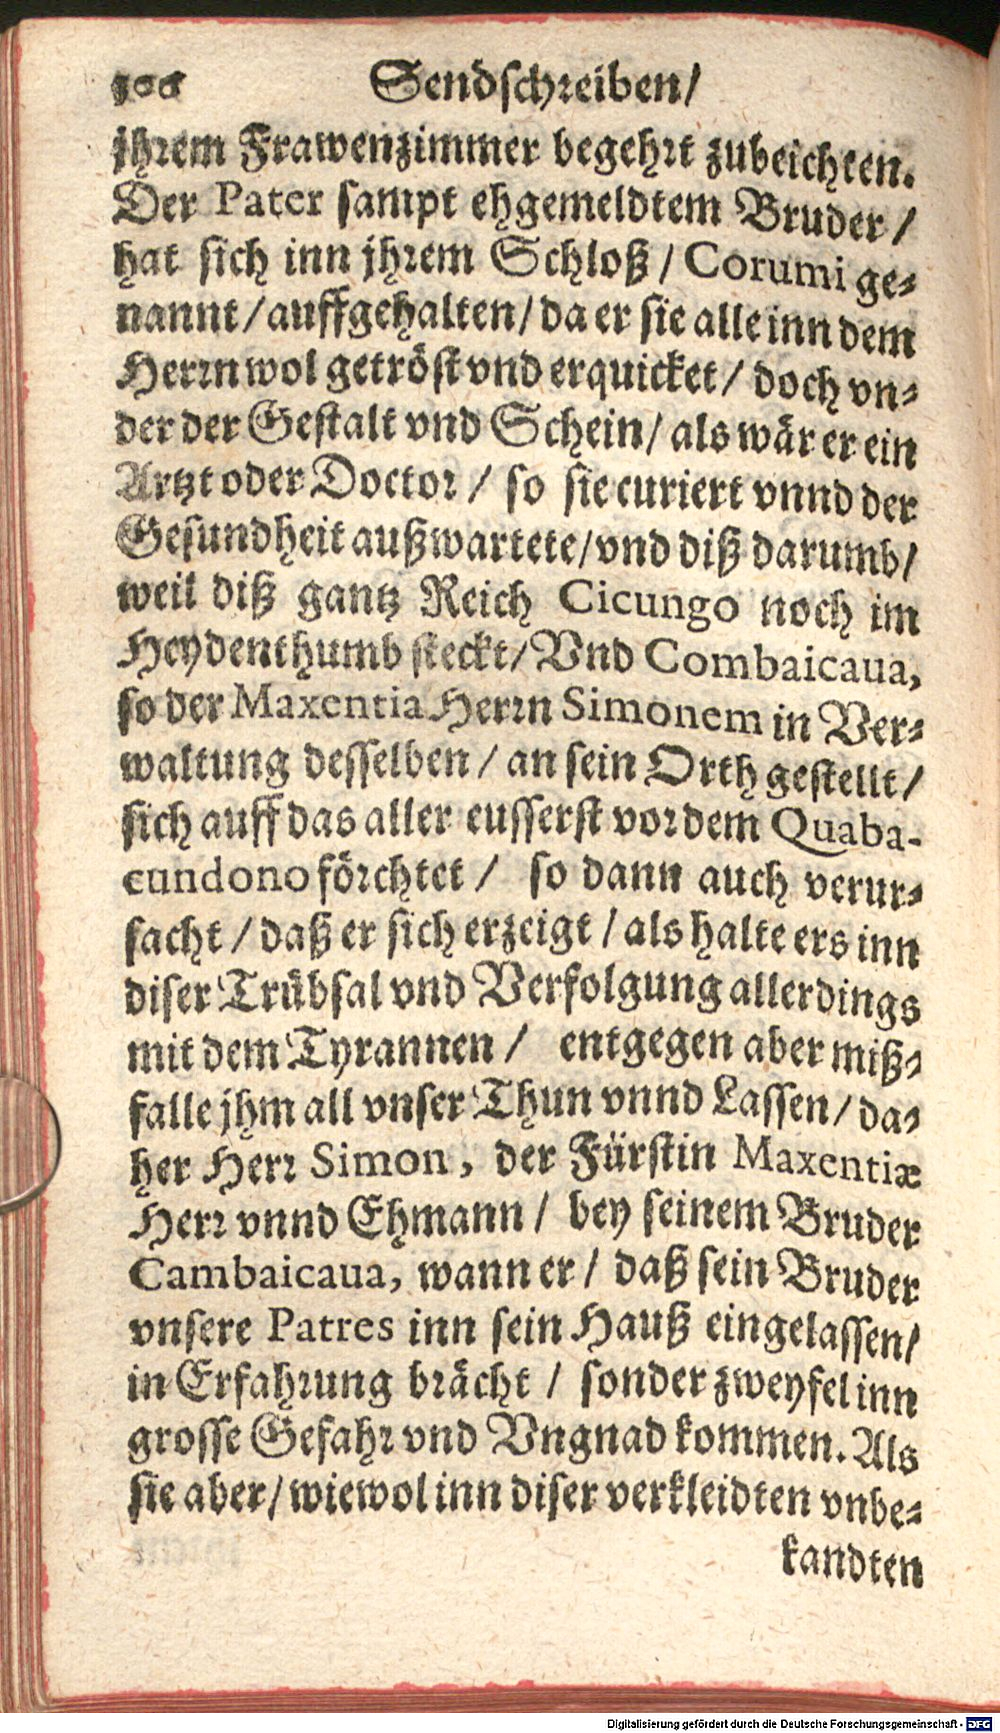 Sendschreiben/
jhrem Frawenzimmer begehrt zubeichten.
Der Pater sampt ehgemeldtem Bruder /
hat sich inn jhrem Schloß / Corumi ge-
nannt / auffgehalten / da er sie alle inn dem
Herrn wol getröst vnd erquicket / doch vn-
der der Gestalt vnd Schein / als wär er ein
Artzt oder Doctor / so sie curiert vnnd der
Gesundheit außwartete / vnd diß darumb /
weil diß gantz Reich Cicungo noch im
Heydenthumb steckt / Vnd Combaicaua,
so der Maxentia Herrn Simonem in Ver-
waltung desselben / an sein Orth gestellt /
sich auff das aller eusserst vor dem Quaba-
cundono förchtet / so dann auch verur-
sacht / daß er sich erzeigt / als halte ers inn
diser Trübsal vnd Verfolgung allerdings
mit dem Tyrannen / entgegen aber miß-
falle jhm all vnser Thun vnnd Lassen / da-
her Herr Simon, der Fürstin Maxentiæ
Herr vnnd Ehmann / bey seinem Bruder
Cambaicaua, wann er / daß sein Bruder
vnsere Patres inn sein Hauß eingelassen /
in Erfahrung brächt / sonder zweyfel inn
grosse Gefahr vnd Vngnad kommen. Als
sie aber / wiewol inn diser verkleidten vnbe-
kandten
Digitalisierung gefördert durch die Deutsche Forschungsgemeinschaft - DFG